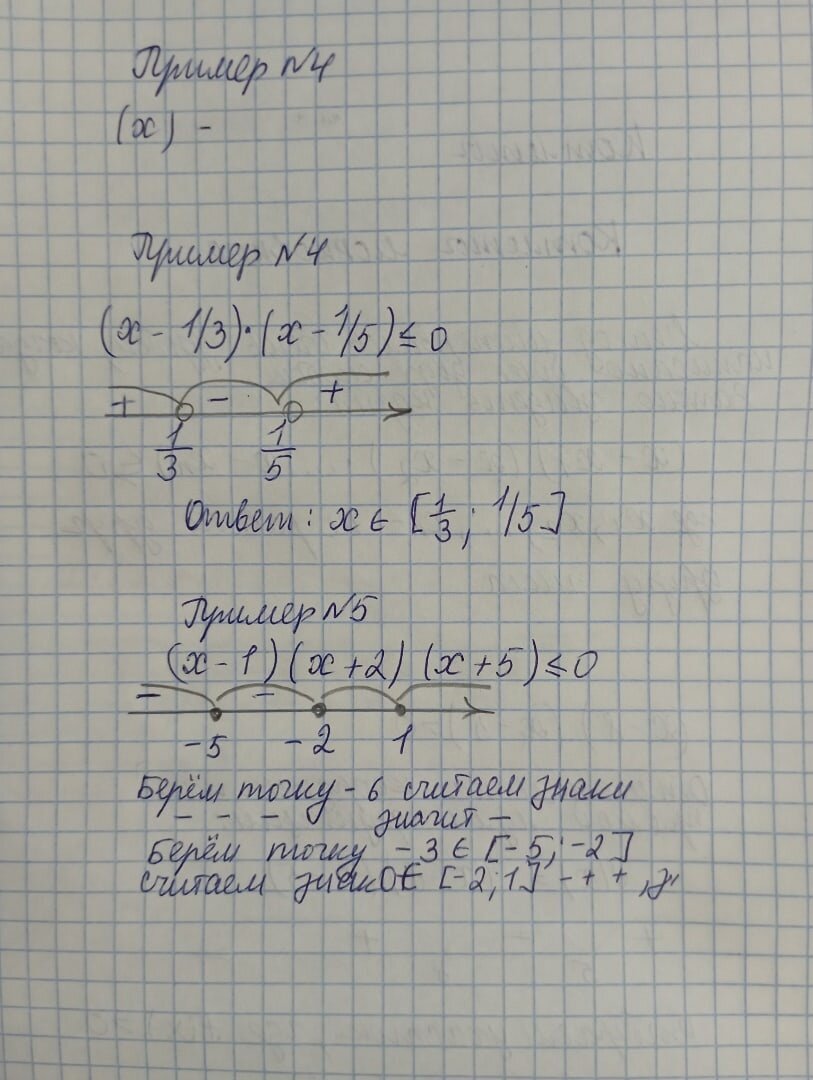 Пример №4
(x) -
Пример №4
(x - 1/3)·(x - 1/5) ≤ 0
+ - +
1/3 1/5
Ответ: x ∈ [1/3; 1/5]
Пример №5
(x - 1) (x + 2) (x + 5) ≤ 0
- -
-5 -2 1
Берём точку - 6 считаем знаки
- - - значит -
Берём точку - 3 ∈ [-5; -2]
считаем ∈ [-2; 1] - + +